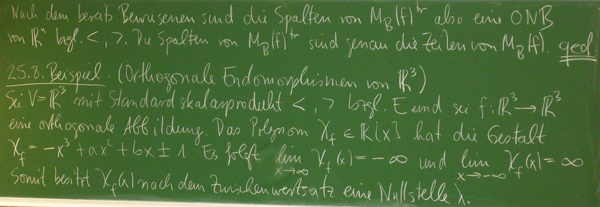 Nach dem bereits Bewiesenen sind die Spalten von M_B(f)^tr also eine ONB
von ℝ^n bzgl. < , >. Die Spalten von M_B(f)^tr sind genau die Zeilen von M_B(f). qed
25.8. Beispiel. (Orthogonale Endomorphismen von ℝ³)
Sei V=ℝ³ mit Standardskalarprodukt < , > bzgl. E und sei f: ℝ³→ℝ³
eine orthogonale Abbildung. Das Polynom χ_f ∈ ℝ[x] hat die Gestalt
χ_f = -x³+ax²+bx±1. Es folgt lim_{x→∞} χ_f(x) = -∞ und lim_{x→-∞} χ_f(x) = ∞
Somit besitzt χ_f(x) nach dem Zwischenwertsatz eine Nullstelle λ.